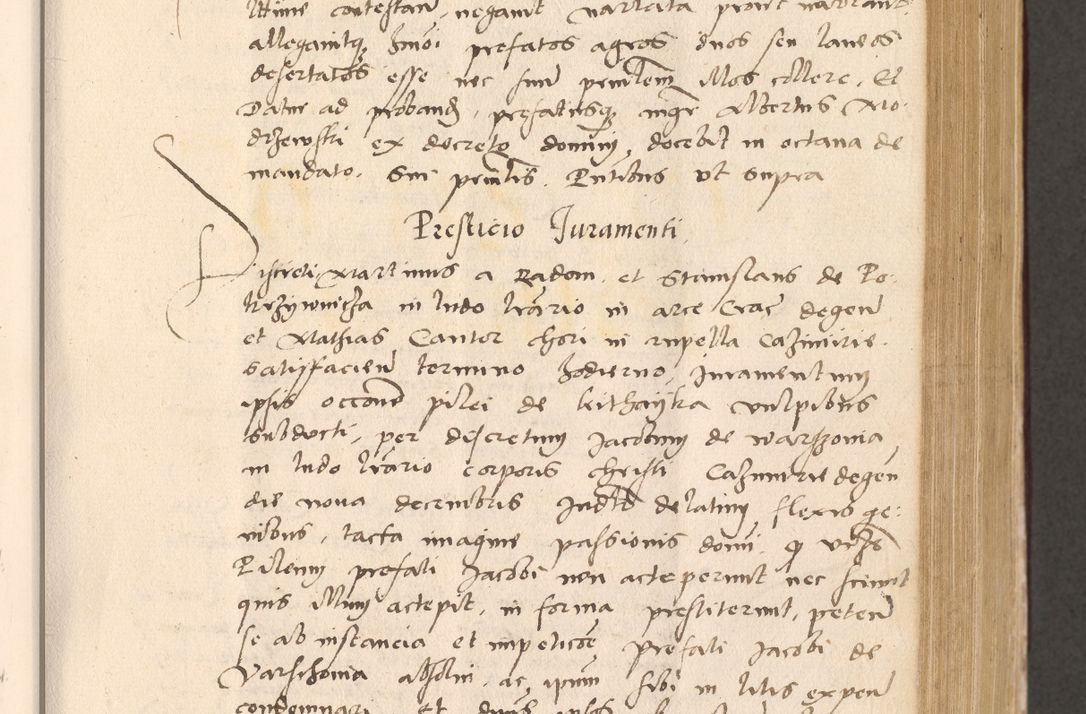 litime contestan negavit narrata prout narrant
allegavitq̃ Imoi prefatos agros duos seu laneos
desertatos esse nec sum pemltem illos collere. Et
Datur ad proband, prefatusq̃ mgr Albertus Mo-
drzewski ex decreto domini, docebit in octava de
mandato. Sui premltis. Pñtibus ut supra
Presticio Juramenti.
Discreti Martinus a Radom. et Stanislaus de Po-
krzywnicza in ludo lrãrio in arce Crac degeñ
et Mathias Cantor chori in cupella Cazimirie.
satisfacieñ termino hodierno, Juramentum
ipsis occõne pilei de kithayka vulpibus
subducti, per discretum Jacobum de warszovia
in ludo lrãrio corporis christi Cazimirie degeñ
die nona decembris Judlr delatum flexis ge-
nibus, tacta imagine passionis domi. q vr̃s
Pileum prefati Jacobi non acceperunt nec sciunt
quis illum accepit, in forma prestiterunt, peteñ
se ab instancia et impeticõe prefati Jacobi de
Varschovia absolvi. ac ipsum sibi in litis expeñ
condemnari Et duns